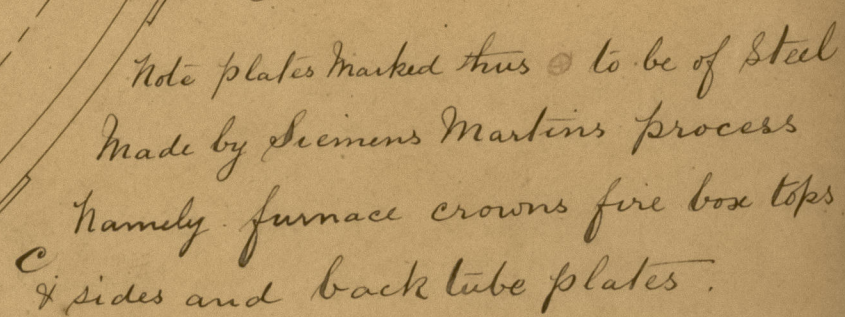 Note plates Marked thus ⊕ to be of Steel
Made by Siemens Martins process
Namely furnace crowns fire box tops
C
& sides and back tube plates.